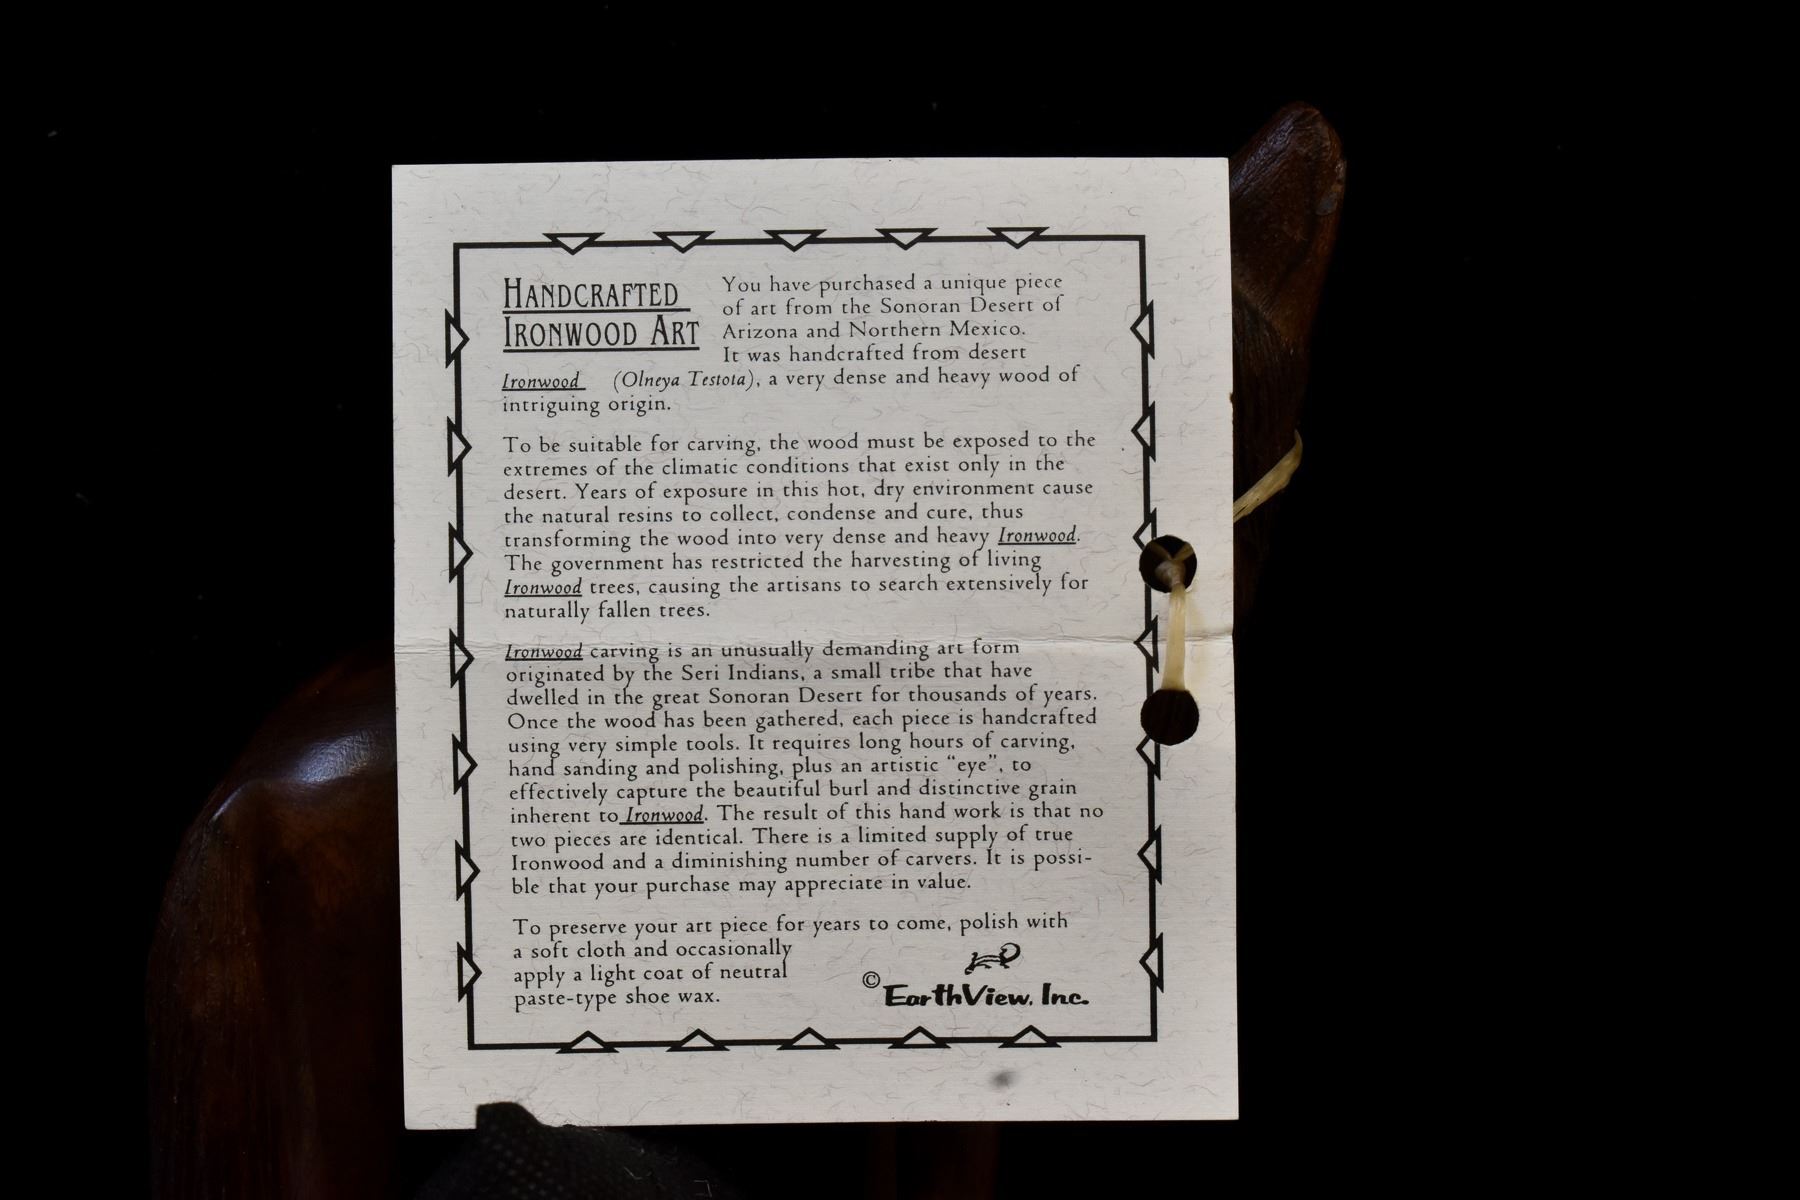 HANDCRAFTED
IRONWOOD ART
You have purchased a unique piece
of art from the Sonoran Desert of
Arizona and Northern Mexico.
It was handcrafted from desert
Ironwood (Olneya Testota), a very dense and heavy wood of
intriguing origin.
To be suitable for carving, the wood must be exposed to the
extremes of the climatic conditions that exist only in the
desert. Years of exposure in this hot, dry environment cause
the natural resins to collect, condense and cure, thus
transforming the wood into very dense and heavy Ironwood.
The government has restricted the harvesting of living
Ironwood trees, causing the artisans to search extensively for
naturally fallen trees.
Ironwood carving is an unusually demanding art form
originated by the Seri Indians, a small tribe that have
dwelled in the great Sonoran Desert for thousands of years.
Once the wood has been gathered, each piece is handcrafted
using very simple tools. It requires long hours of carving,
hand sanding and polishing, plus an artistic “eye”, to
effectively capture the beautiful burl and distinctive grain
inherent to Ironwood. The result of this hand work is that no
two pieces are identical. There is a limited supply of true
Ironwood and a diminishing number of carvers. It is possi-
ble that your purchase may appreciate in value.
To preserve your art piece for years to come, polish with
a soft cloth and occasionally
apply a light coat of neutral
paste-type shoe wax.
© EarthView, Inc.